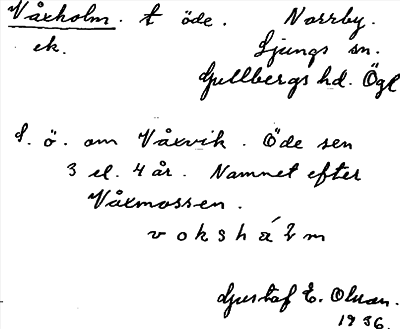 Våxholm. t öde. Norrby.
ek. Ljungs sn.
Gullbergs hd. Ögl
S. ö. om Våxvik. Öde sen
3 el. 4 år. Namnet efter
Våxmossen.
Gustaf E. Olsson.
1936.